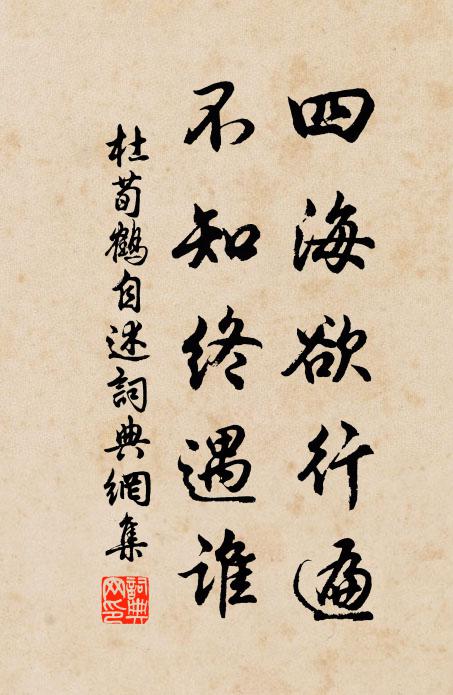 四海欲行遍
不知終遇誰
杜荀鶴自述詞典網集
詞典网印